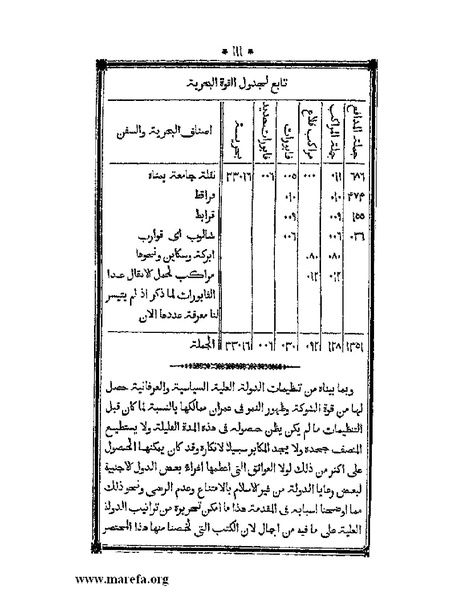 * ١١١ *
تابع لجدول القوة البحرية
اصناف البحرية والسفن بحرية فابورات حديد فابورات مراكب قلاع جملة المراكب جملة المدافع
نقلة جامعة يمناه ٣٣٠١٦ ٠٠٦ ٠٠٥ ٠٠٠ ٠١١ ٦٨٦
فراقط ٠١٠ ٠١٠ ٤٧٤
قرابط ٠٠٩ ٠٠٩ ١٥٥
شالوب اى قوارب ٠٠٦ ٠٠٦ ٠٣٦
ابركة وسكاين ونحوها ٠٨٠ ٠٨٠
مراكب لحمل الاثقال عدا ٠١٢ ٠١٢
الفابورات لما ذكر اذ لم يتيسر
لنا معرفة عددها الان
الجملة ٣٣٠١٦ ٠٠٦ ٠٣٠ ٠٩٢ ١٢٨ ١٣٥١
وبما بيناه من تنظيمات الدولة العلية السياسية والعرفانية حصل
لها من قوة الشوكة وظهور النمو فى عمران ممالكها بالنسبة لما كان قبل
التنظيمات ما لم يكن يظن حصوله فى هذه المدة القليلة ولا يستطيع
المنصف جحده ولا يجد المكابر سبيلا لانكاره وقد كان يمكنها الحصول
على اكثر من ذلك لولا العوائق التى اعظمها اغراء بعض الدول الاجنبية
لبعض رعايا الدولة من غير الاسلام بالامتناع وعدم الرضى ونحو ذلك
مما اوضحنا اسبابه فى المقدمة هذا ما امكن تحريره من تراتيب الدولة
العلية على ما فيه من اجمال لان الكتب التى لخصنا منها هذا المختصر
www.marefa.org